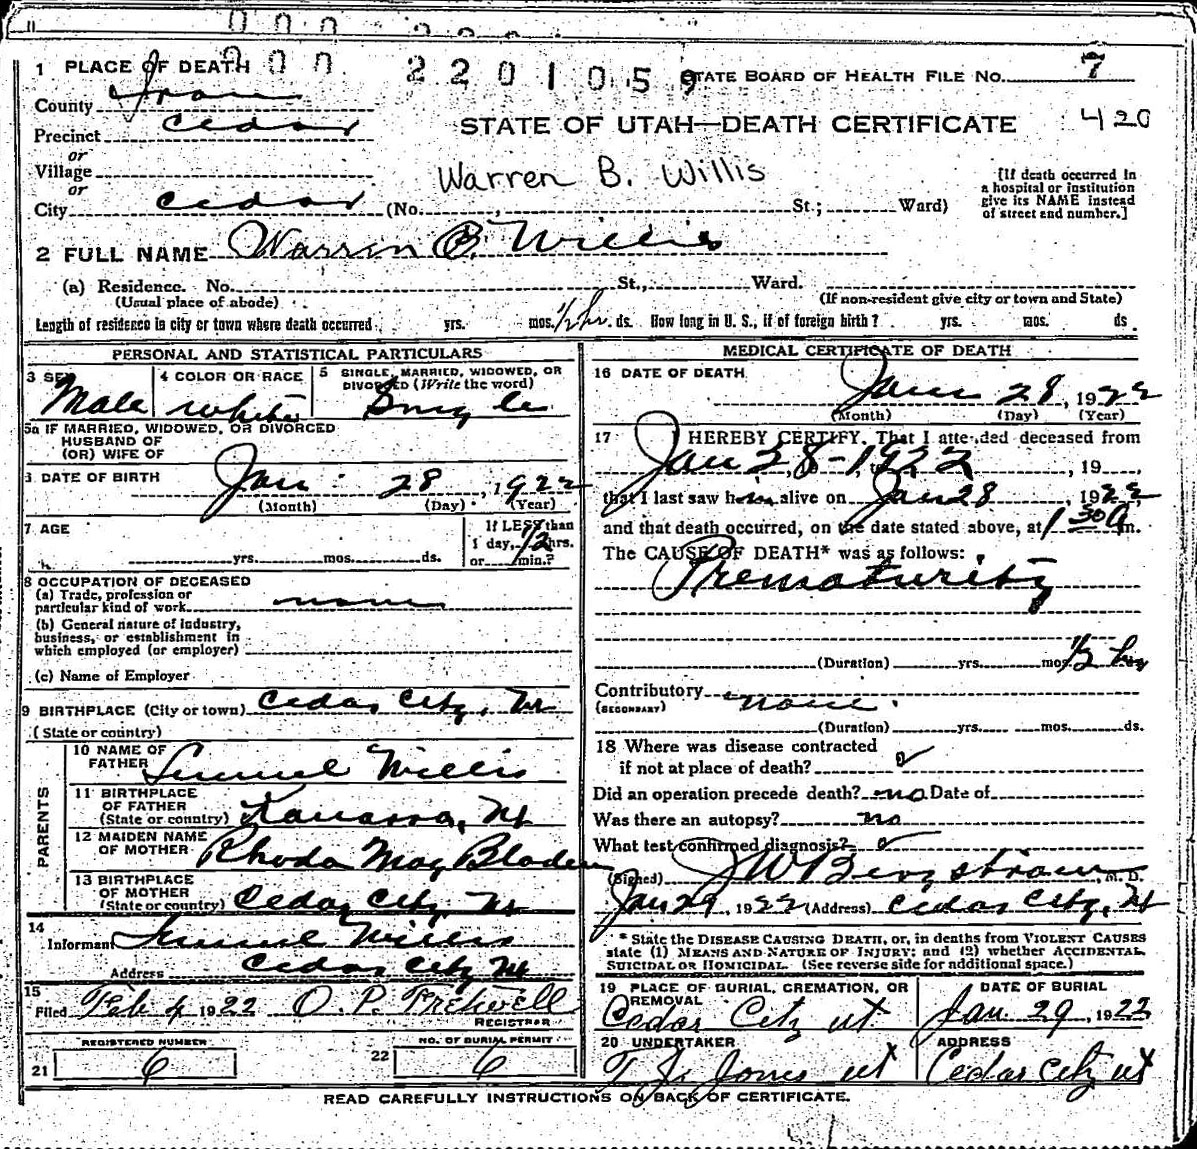 000 2201059
1 PLACE OF DEATH
STATE BOARD OF HEALTH FILE NO. 7
County Iron
Precinct Cedar
STATE OF UTAH—DEATH CERTIFICATE 420
or
Village
Warren B. Willis
or
City Cedar (No. , St.; Ward)
[If death occurred in a hospital or institution give its NAME instead of street and number.]
2 FULL NAME Warren B. Willis
(a) Residence. No. St., Ward.
(Usual place of abode) (If non-resident give city or town and State)
Length of residence in city or town where death occurred yrs. mos. 1/2 hr. ds. How long in U. S., if of foreign birth? yrs. mos. ds
PERSONAL AND STATISTICAL PARTICULARS
3 SEX 4 COLOR OR RACE 5 SINGLE, MARRIED, WIDOWED, OR DIVORCED (Write the word)
Male white Single
5a IF MARRIED, WIDOWED, OR DIVORCED
HUSBAND OF
(OR) WIFE OF
DATE OF BIRTH Jan 28, 1922
(Month) (Day) (Year)
7 AGE If LESS than
yrs. mos. ds. 1 day, 1/2 hrs.
or min.?
8 OCCUPATION OF DECEASED
(a) Trade, profession or
particular kind of work none
(b) General nature of industry,
business, or establishment in
which employed (or employer)
(c) Name of Employer
9 BIRTHPLACE (City or town) Cedar City, Ut
(State or country)
PARENTS
10 NAME OF
FATHER Willis
11 BIRTHPLACE
OF FATHER
(State or country) Kanarra, Ut
12 MAIDEN NAME
OF MOTHER Rhoda May Bladen
13 BIRTHPLACE
OF MOTHER
(State or country) Cedar City Ut
14
Informant Willis
Address Cedar City Ut
15
Filed Feb 4 1922 O. P. Fretwell
REGISTRAR
REGISTERED NUMBER NO. OF BURIAL PERMIT
21 6 22 6
MEDICAL CERTIFICATE OF DEATH
16 DATE OF DEATH
Jan 28, 1922
(Month) (Day) (Year)
17 I HEREBY CERTIFY, That I attended deceased from
Jan 28-1922, 19
that I last saw him alive on Jan 28 1922
and that death occurred, on the date stated above, at 1 30 a m.
The CAUSE OF DEATH* was as follows:
Prematurity
(Duration) yrs. mos. 1/2 hr
Contributory none
(SECONDARY)
(Duration) yrs. mos. ds.
18 Where was disease contracted
if not at place of death?
Did an operation precede death? no Date of
Was there an autopsy? no
What test confirmed diagnosis?
(Signed) J W Bergstrom, M. D.
Jan 29, 1922 (Address) Cedar City, Ut
* State the DISEASE CAUSING DEATH, or, in deaths from VIOLENT CAUSES
state (1) MEANS AND NATURE OF INJURY; and (2) whether ACCIDENTAL,
SUICIDAL OR HOMICIDAL. (See reverse side for additional space.)
19 PLACE OF BURIAL, CREMATION, OR REMOVAL DATE OF BURIAL
Cedar City Ut Jan 29, 1922
20 UNDERTAKER ADDRESS
T. J. Jones Ut Cedar City Ut
READ CAREFULLY INSTRUCTIONS ON BACK OF CERTIFICATE.